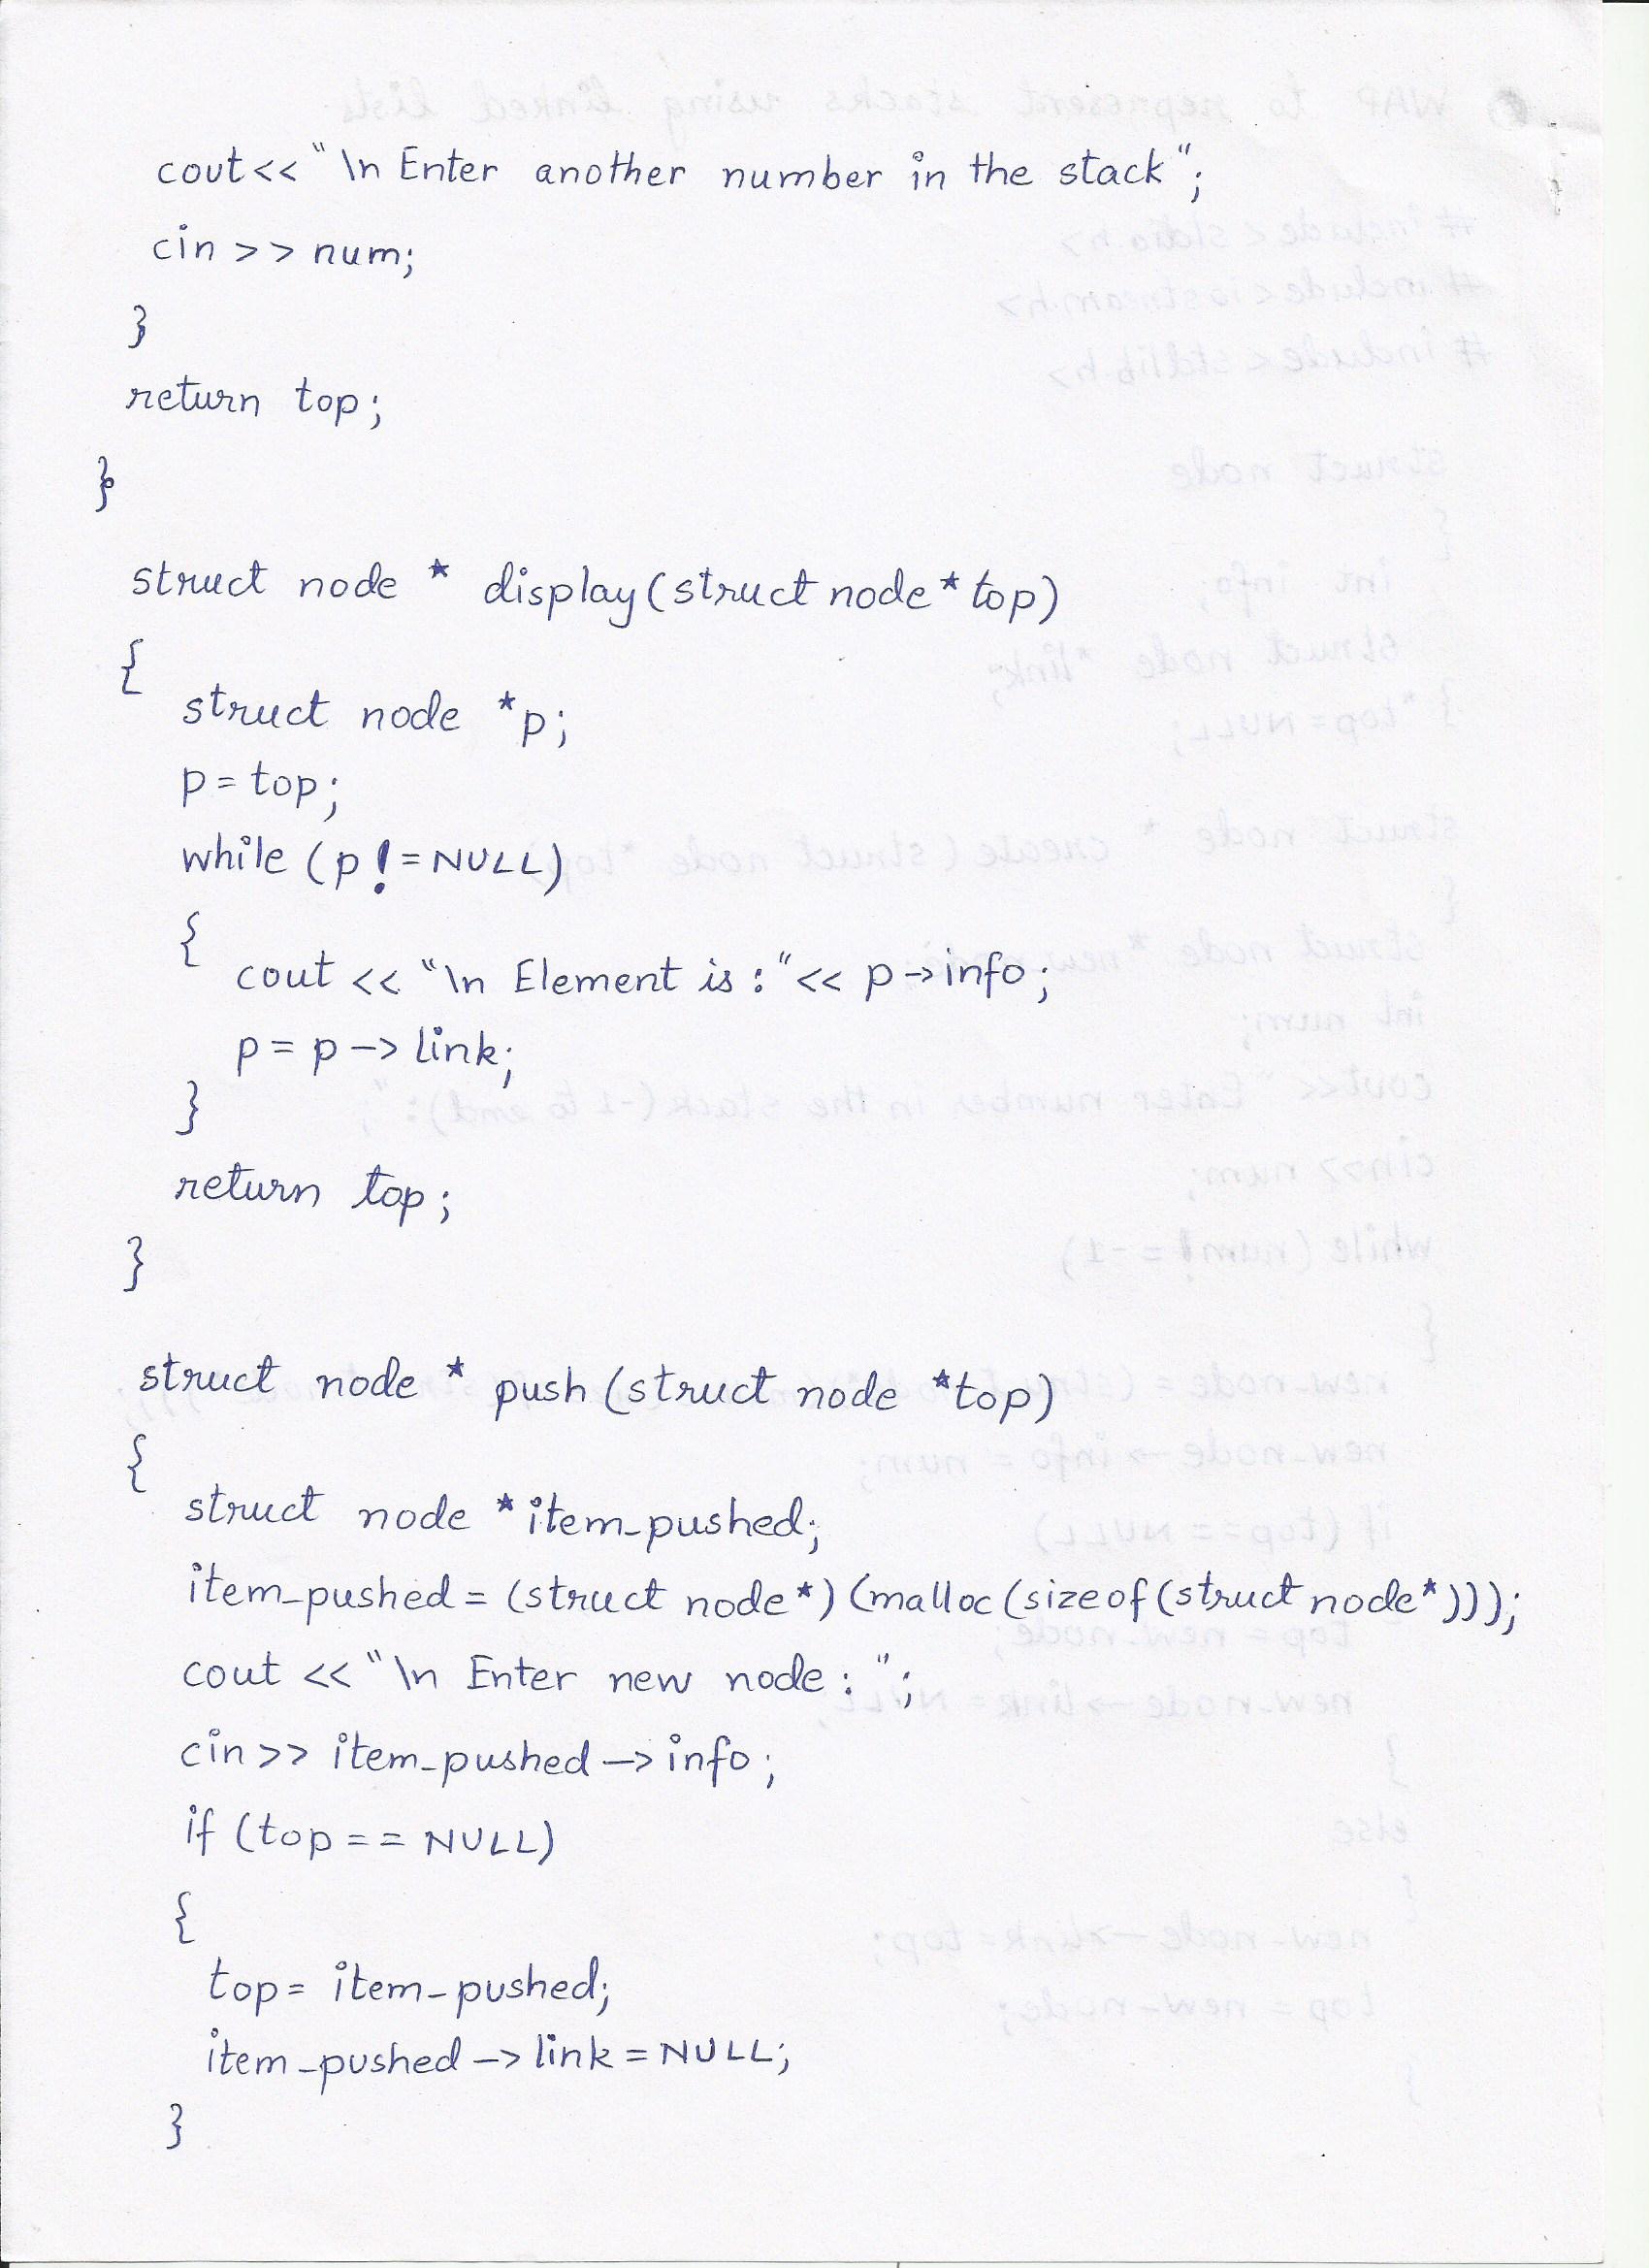 cout<< "\n Enter another number in the stack";
cin >> num;
}
return top;
}
struct node * display(struct node * top)
{
struct node *p;
p = top;
while (p != NULL)
{
cout << "\n Element is : " << p -> info;
p = p -> link;
}
return top;
}
struct node * push (struct node *top)
{
struct node *item_pushed;
item_pushed = (struct node*) (malloc(sizeof(struct node*)));
cout << "\n Enter new node : ";
cin >> item_pushed -> info;
if (top == NULL)
{
top = item_pushed;
item_pushed -> link = NULL;
}